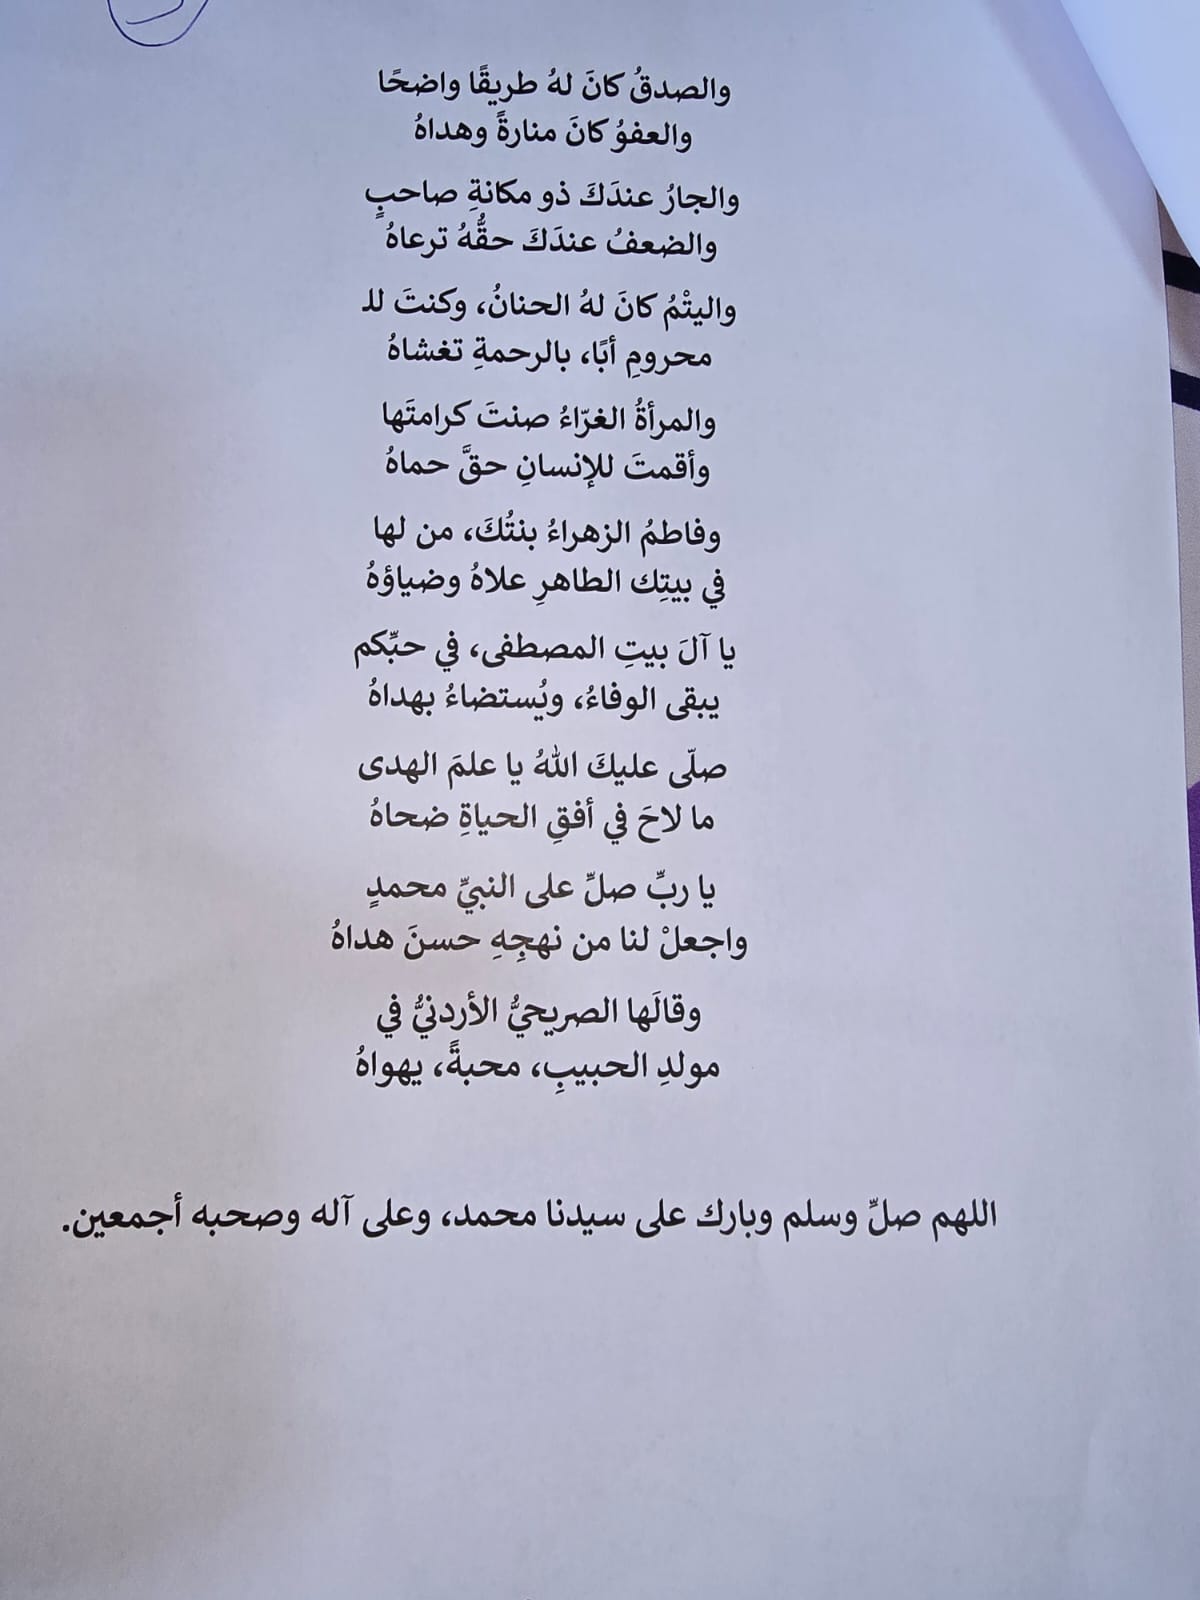 والصدقُ كانَ لهُ طريقًا واضحًا
والعفوُ كانَ منارةً وهداهُ
والجارُ عندَكَ ذو مكانةِ صاحبٍ
والضعفُ عندَكَ حقُّهُ ترعاهُ
واليتْمُ كانَ لهُ الحنانُ، وكنتَ للـ
محرومِ أبًا، بالرحمةِ تغشاهُ
والمرأةُ الغرّاءُ صنتَ كرامتَها
وأقمتَ للإنسانِ حقَّ حماهُ
وفاطمُ الزهراءُ بنتُكَ، من لها
في بيتِك الطاهرِ علاهُ وضياؤهُ
يا آلَ بيتِ المصطفى، في حبِّكم
يبقى الوفاءُ، ويُستضاءُ بهداهُ
صلّى عليكَ اللهُ يا علمَ الهدى
ما لاحَ في أفقِ الحياةِ ضحاهُ
يا ربِّ صلِّ على النبيِّ محمدٍ
واجعلْ لنا من نهجِهِ حسنَ هداهُ
وقالَها الصريحيُّ الأردنيُّ في
مولدِ الحبيبِ، محبةً، يهواهُ
اللهم صلِّ وسلم وبارك على سيدنا محمد، وعلى آله وصحبه أجمعين.